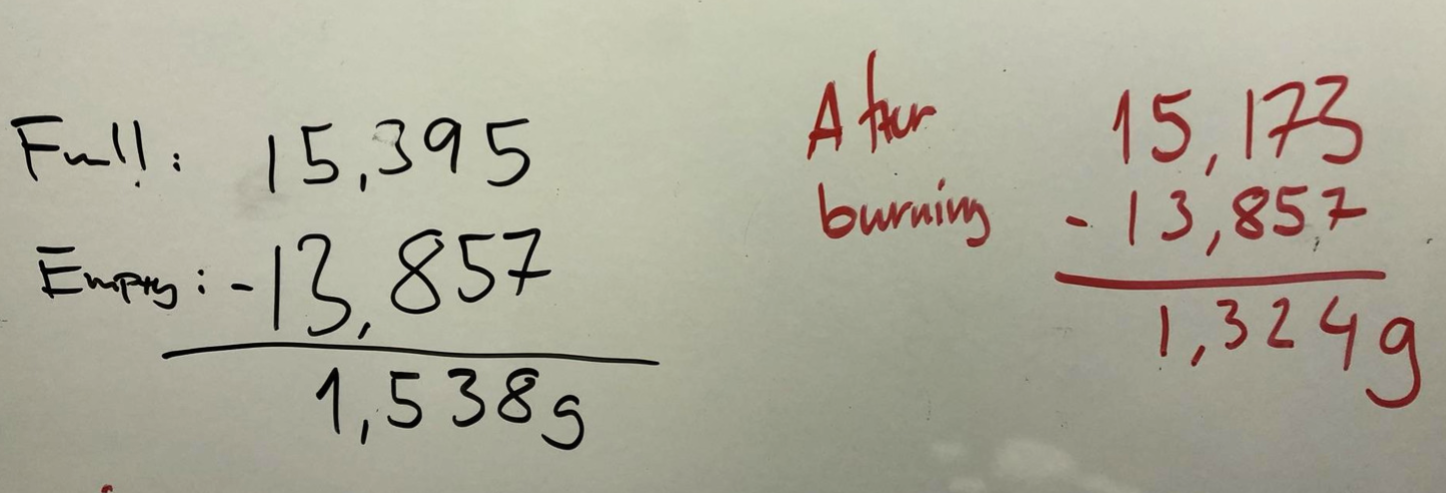 Full: 15,395
Empty: -13,857
1,538g
After
burning
15,173
-13,857
1,324g